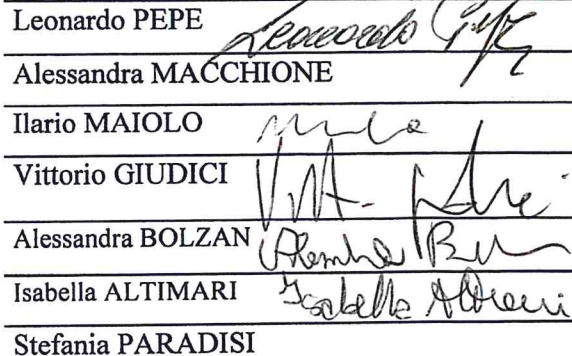 Leonardo PEPE Leonardo
Alessandra MACCHIONE
Ilario MAIOLO
Vittorio GIUDICI
Alessandra BOLZAN
Isabella ALTIMARI Isabella Altimari
Stefania PARADISI